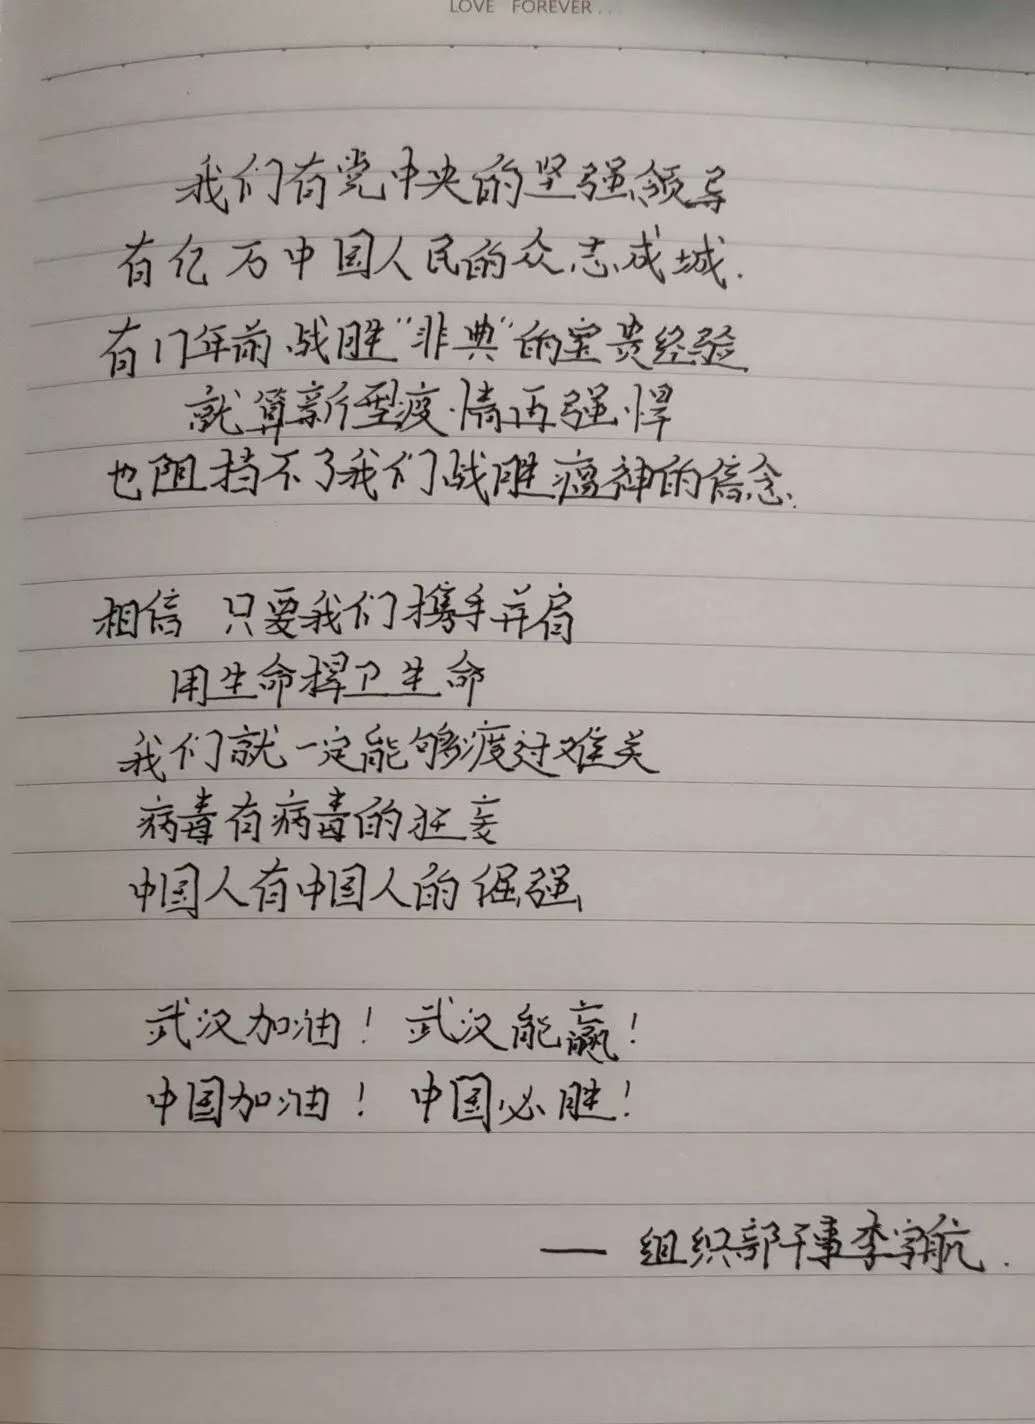 LOVE FOREVER...
我们有党中央的坚强领导
有亿万中国人民的众志成城.
有17年前战胜"非典"的宝贵经验
就算新型疫情再强悍
也阻挡不了我们战胜瘟神的信念.
相信 只要我们携手并肩
用生命捍卫生命
我们就一定能够渡过难关
病毒有病毒的狂妄
中国人有中国人的倔强
武汉加油！ 武汉能赢！
中国加油！ 中国必胜！
—— 组织部干事李宇航.